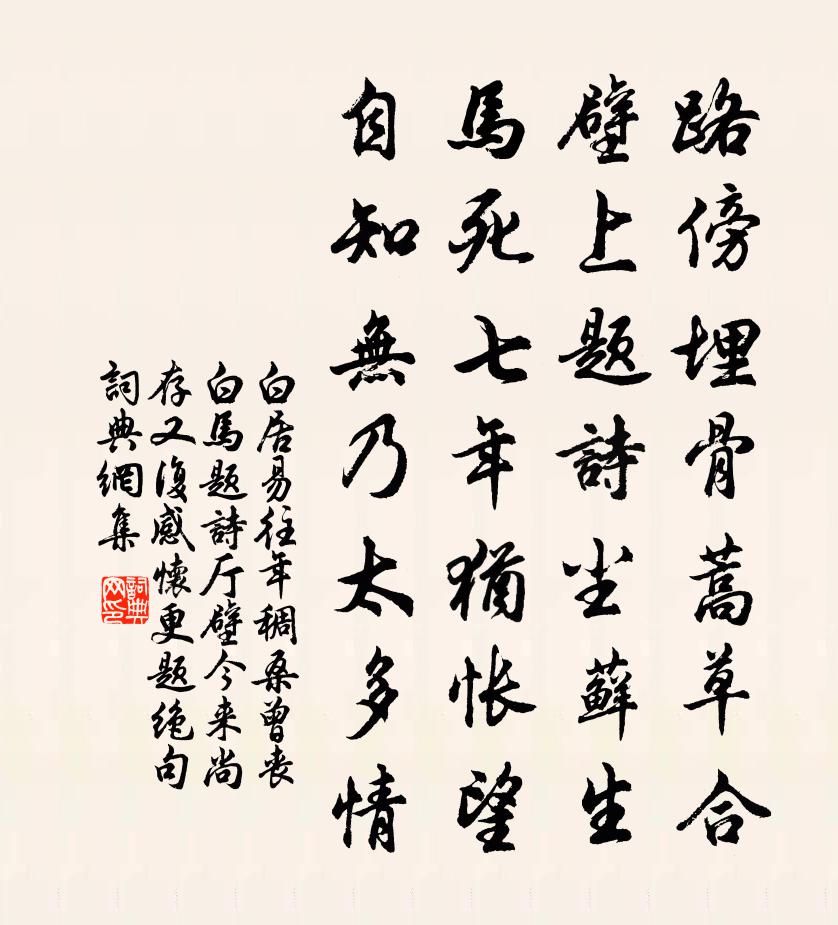 路傍埋骨蒿草合
壁上题詩尘蘚生
馬死七年猶怅望
自知無乃太多情
白居易往年稠桑曾丧
白馬题詩厅壁今来尚
存又復感懷更题绝句
詞典網集
詞典
网印